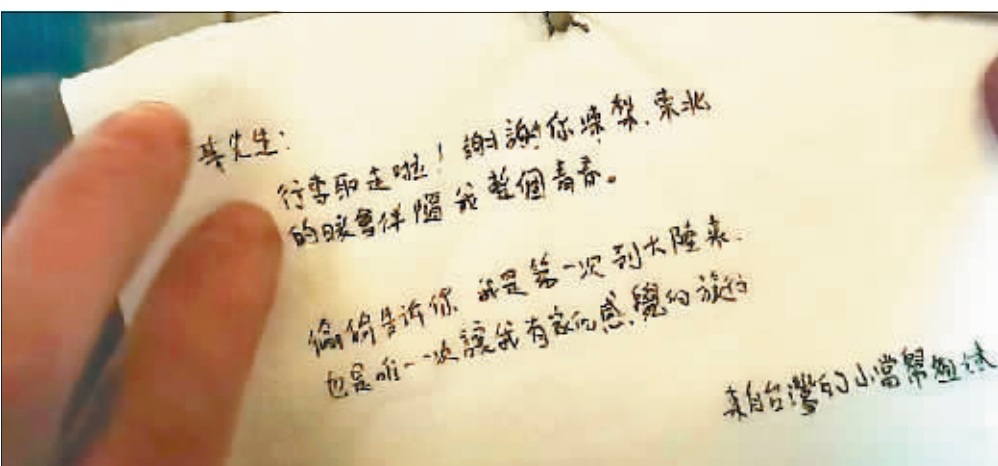 先生:
行李取走啦!謝謝你 凍梨.東北
的暖會伴隨我整個青春。
偷偷告诉你.我是第一次到大陸來.
也是唯一一次讓我有家的感覺的旅行
來自台灣的小當